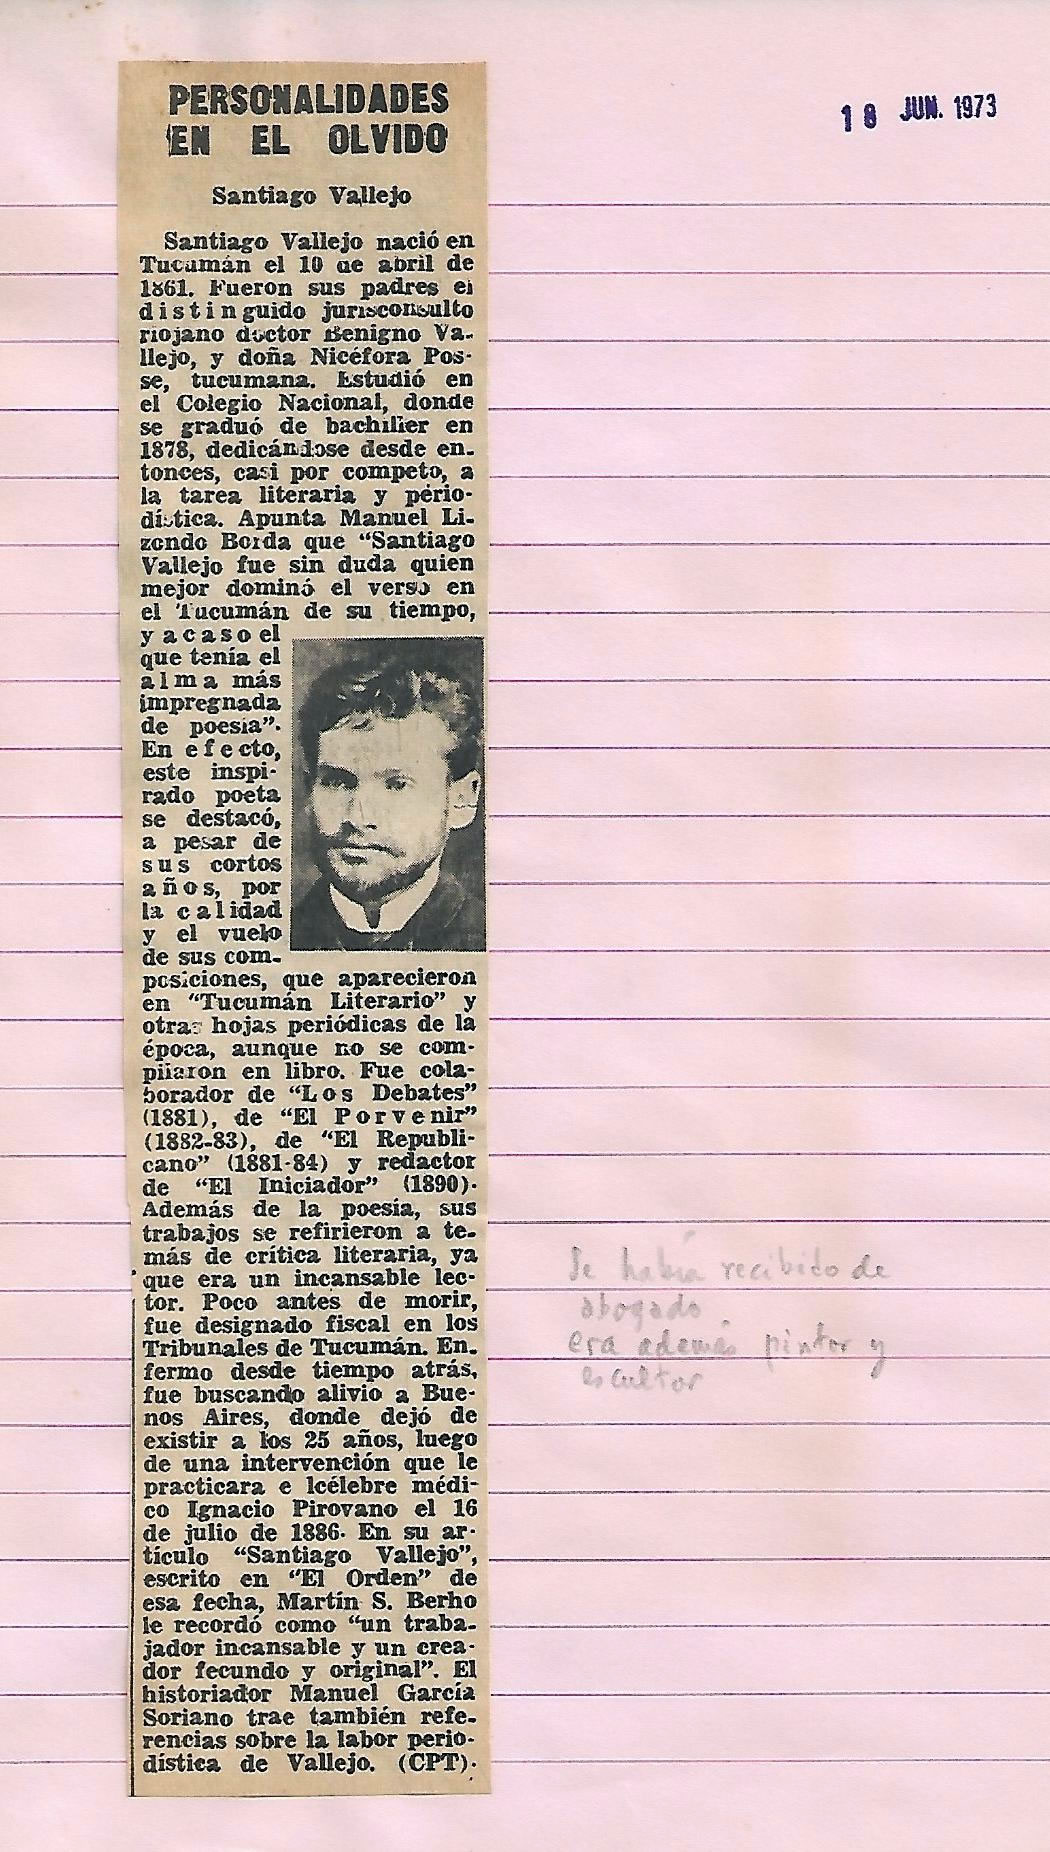 PERSONALIDADES
EN EL OLVIDO
18 JUN. 1973
Santiago Vallejo
Santiago Vallejo nació en
Tucumán el 10 de abril de
1861. Fueron sus padres el
distinguido jurisconsulto
riojano doctor Benigno Va-
llejo, y doña Nicéfora Pos-
se, tucumana. Estudió en
el Colegio Nacional, donde
se graduó de bachiller en
1878, dedicándose desde en-
tonces, casi por competo, a
la tarea literaria y perio-
dística. Apunta Manuel Li-
zondo Borda que “Santiago
Vallejo fue sin duda quien
mejor dominó el verso en
el Tucumán de su tiempo,
y acaso el
que tenía el
alma más
impregnada
de poesía”.
En efecto,
este inspi-
rado poeta
se destacó,
a pesar de
sus cortos
años, por
la calidad
y el vuelo
de sus com-
posiciones, que aparecieron
en “Tucumán Literario” y
otras hojas periódicas de la
época, aunque no se com-
pilaron en libro. Fue cola-
borador de “Los Debates”
(1881), de “El Porvenir”
(1882-83), de “El Republi-
cano” (1881-84) y redactor
de “El Iniciador” (1890).
Además de la poesía, sus
trabajos se refirieron a te-
más de crítica literaria, ya
que era un incansable lec-
tor. Poco antes de morir,
fue designado fiscal en los
Tribunales de Tucumán. En-
fermo desde tiempo atrás,
fue buscando alivio a Bue-
nos Aires, donde dejó de
existir a los 25 años, luego
de una intervención que le
practicara e lcélebre médi-
co Ignacio Pirovano el 16
de julio de 1886. En su ar-
tículo “Santiago Vallejo”,
escrito en “El Orden” de
esa fecha, Martín S. Berho
le recordó como “un traba-
jador incansable y un crea-
dor fecundo y original”. El
historiador Manuel García
Soriano trae también refe-
rencias sobre la labor perio-
dística de Vallejo. (CPT).
Se había recibido de
abogado
era además pintor y
escultor